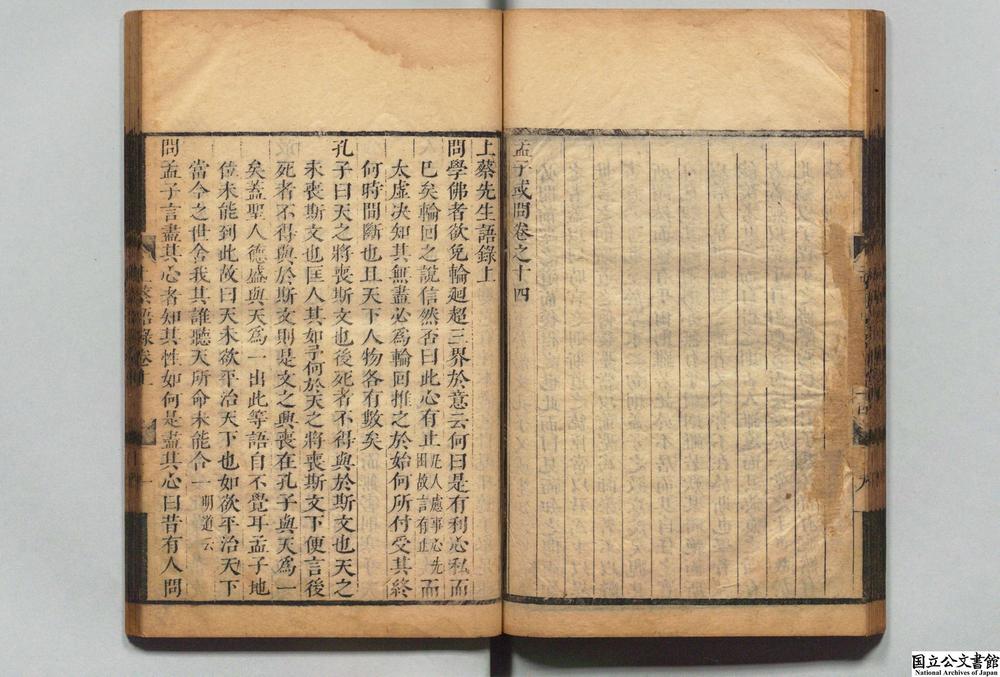 孟子或問卷之十四
上蔡先生語錄上
問學佛者欲免輪廻超三界於意云何曰是有利心私而
已矣輪回之說信然否曰此心有止凡人慮事心先困故言有止而
太虛决知其無盡必爲輪回推之於始何所付受其終
何時間斷也且天下人物各有數矣
孔子曰天之將喪斯文也後死者不得與於斯文也天之
未喪斯文也匡人其如予何於天之將喪斯文下便言後
死者不得與於斯文則是文之興喪在孔子與天爲一
矣蓋聖人德盛與天爲一出此等語自不覺耳孟子地
位未能到此故曰天未欲平治天下也如欲平治天下
當今之世舍我其誰聽天所命未能合一明道云
問孟子言盡其心者知其性如何是盡其心曰昔有人問
上蔡語錄卷上
一
国立公文書館
National Archives of Japan